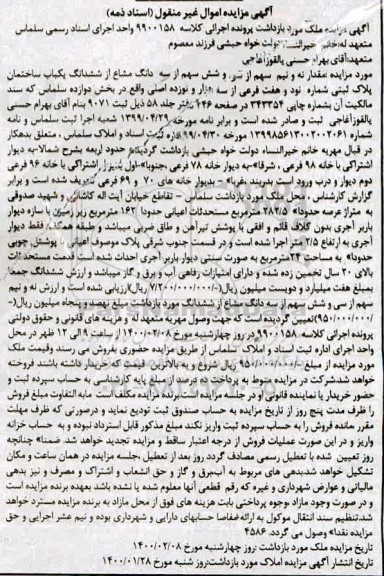 آگهی مزایده اموال غیر منقول (اسناد ذمه)
آگهی مزایده ملک مورد بازداشت پرونده اجرائی کلاسه ۹۹۰۰۱۵۸ واحد اجرای اسناد رسمی سلماس
متعهد له:خانم خیرالنساء دولت خواه حبشی فرزند معصوم
متعهد:آقای بهرام حسنی یالقوزآغاجی
مورد مزایده مقدار نه و نیم سهم از سی و شش سهم از سه دانگ مشاع از ششدانگ یکباب ساختمان
پلاک ثبتی شماره نود و هفت فرعی از سه هزار و نوزده اصلی واقع در بخش دوازده سلماس که سند
مالکیت آن بشماره چاپی ۳۴۳۳۵۴ در صفحه ۲۴۶ دفتر جلد ۵۸ ذیل ثبت ۹۰۷۱ بنام آقای بهرام حسنی
یالقوزآغاجی ثبت و صادر شده است و برابر نامه مورخه ۱۳۹۹/۰۴/۲۹ شعبه اجرا ثبت سلماس و نامه
شماره ۱۳۹۹۸۵۶۱۳۰۰۲۰۰۲۰۶۱ مورخه ۹۹/۰۴/۳۰ اداره ثبت اسناد و املاک سلماس ، متعلق بدهکار
در قبال مهریه خانم خیرالنساء دولت خواه حبشی بازداشت گردیده حدود اربعه بشرح شمالا-به دیوار
اشتراکی با خانه ۹۸ فرعی ، شرقا-به دیوار خانه ۷۸ فرعی ،جنوبا-اول بدیوار اشتراکی با خانه ۹۶ فرعی
دوم دیوار و درب ورود است ببن‌بند ،غربا- بدیوار خانه های ۷۰ و ۶۹ فرعی تعریف شده است و برابر
گزارش کارشناس ، محل ملک مورد بازداشت سلماس – تقاطع خیابان آیت اله کاشانی و شهید صدوقی
به متراژ عرصه حدودا ۲۸۲/۵ مترمربع مستحدثات اعیانی حدودا ۱۶۲ مترمربع زیر زمین با سازه دیوار
باربر آجری بدون کلاف قائم و افقی با پوشش تیرآهن و طاق ضربی میباشد و طبقه همکف فقط دیوار
آجری به ارتفاع ۲/۵ متر اجرا شده است و در قسمت جنوب شرقی پلاک موصوف اعیانی با پوشش چوبی
حدودا به مساحت ۲۴مترمربع به صورت سنتی دیوار باربر آجری احداث شده است قدمت مستحدثات
بالای ۲۰ سال تخمین زده شده و دارای امتیازات رفاهی آب و برق و گاز میباشد و ارزش ششدانگ جمعا
بمبلغ هفت میلیارد و دویست میلیون ریال(۷/۲۰۰/۰۰۰/۰۰۰ ریال)ارزیابی شده است و ارزش نه و نیم
سهم از سی و شش سهم از سه دانگ مشاع از ششدانگ مورد بازداشت مبلغ نهصد و پنجاه میلیون ریال(
۹۵۰/۰۰۰/۰۰۰)تعیین گردیده است که جهت وصول مهریه متعهد له و هزینه های قانونی و حقوق دولتی
پرونده اجرائی کلاسه ۹۹۰۰۱۵۸ در روز چهارشنبه مورخ ۱۴۰۰/۰۲/۰۸ از ساعت ۹ الی ۱۲ ظهر در محل
واحد اجرای اداره ثبت اسناد و املاک سلماس از طریق مزایده حضوری بفروش می رسند وقیمت ملک
مورد مزایده از مبلغ ۹۵۰/۰۰۰/۰۰۰ ریال شروع و به بالاترین قیمت که خریدار داشته باشند فروخته
خواهد شد.شرکت در مزایده منوط به پرداخت ده درصد از مبلغ پایه کارشناسی به حساب سپرده ثبت و
حضور خریدار یا نماینده قانونی او در جلسه مزایده است.برنده مزایده مکلف است مابه التفاوت مبلغ فروش
را ظرف مدت پنج روز از تاریخ مزایده به حساب صندوق ثبت تودیع نماید و درصورتی که ظرف مهلت
مقرر مانده فروش را به حساب سپرده ثبت واریز نکند مبلغ مذکور قابل استرداد نبوده و به حساب خزانه
واریز و در این صورت عملیات فروش از درجه اعتبار ساقط و مزایده تجدید خواهد شد. ضمنا چنانچه
روز تعیین شده با تعطیل رسمی مصادف گردد روز بعد از تعطیل ،جلسه مزایده در همان ساعت و مکان
تشکیل خواهد شد.بدهی های مربوط به آب،برق و گاز و حق انشعاب و اشتراک و مصرف و نیز بدهی
مالیاتی و عوارض شهرداری و غیره که رقم قطعی آنها معلوم شده یا نشده باشد بعهده برنده مزایده است
و در صورت وجود مازاد ،وجوه پرداختی بابت هزینه های فوق از محل مازاد به برنده مزایده مسترد خواهد
شد.تنظیم سند انتقال موکول به ارائه مفاصا حسابهای دارایی و شهرداری بوده و نیم عشر اجرایی و حق
مزایده نقدا وصول می گردد. ۴۵۸۶
تاریخ مزایده ملک مورد بازداشت:روز چهارشنبه مورخ ۱۴۰۰/۰۲/۰۸
تاریخ انتشار آگهی مزایده املاک مورد بازداشت:روز شنبه مورخ ۱۴۰۰/۰۱/۲۸